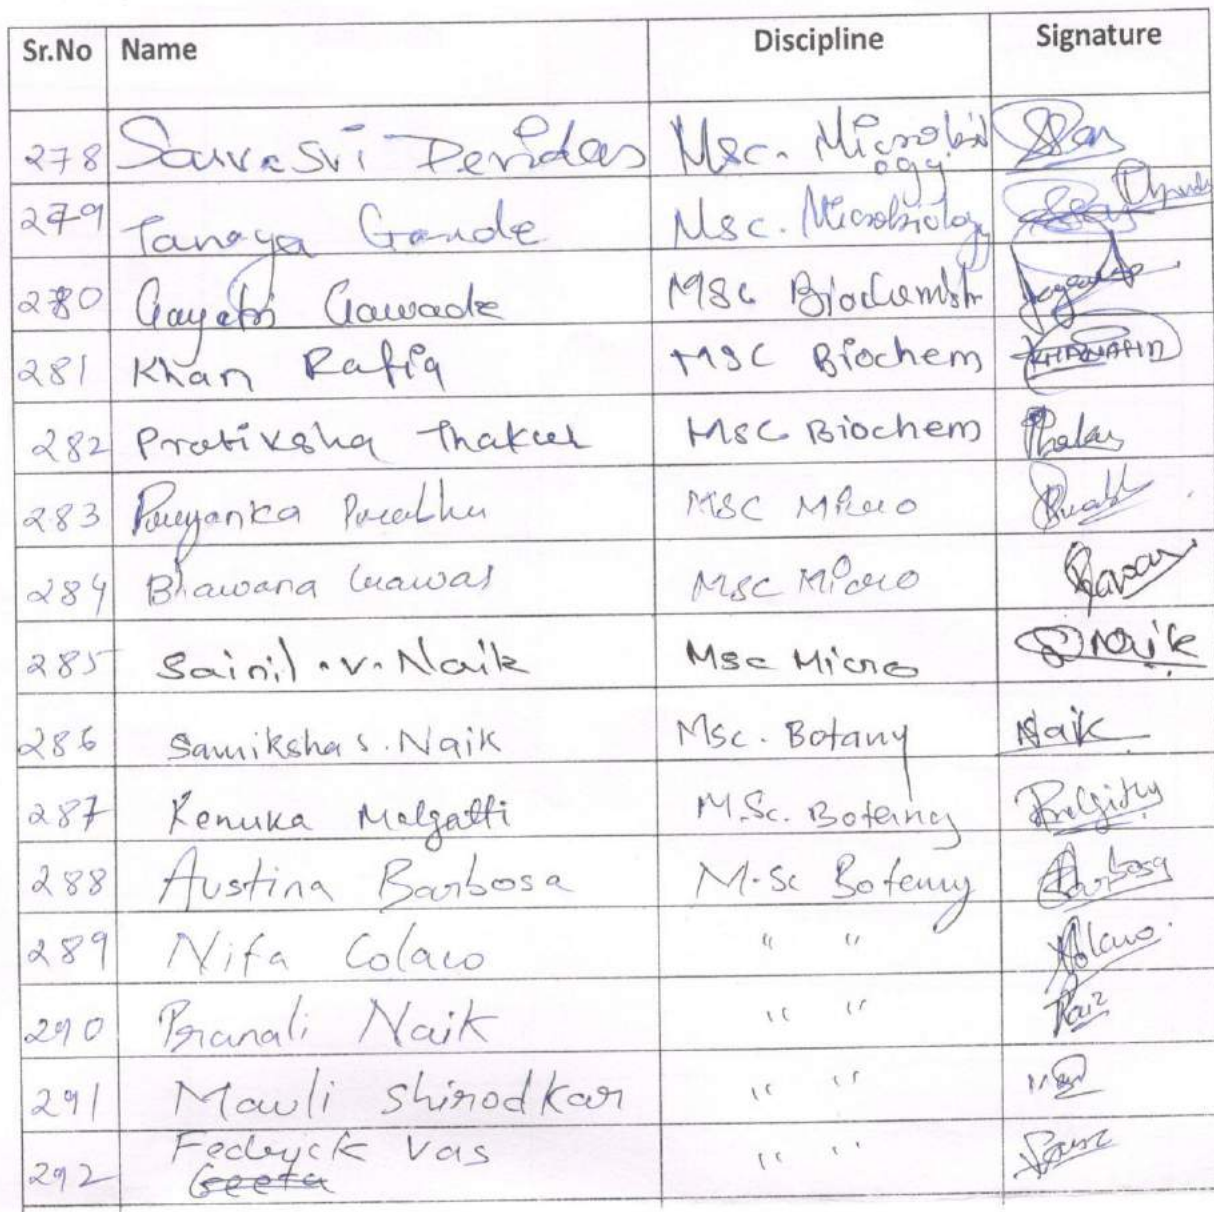 Sr.No Name Discipline Signature
278 Sarvasvi Devidas Msc. Microbiology
279 Tanaya Gawde Msc. Microbiology
280 Gayatri Gawade MSc Biochemistr
281 Khan Rafiq MSC Biochem
282 Pratiksha Thakur MSC Biochem
283 Priyanka Prabhu MSC Micro
284 Bhawana Gawas MSC Micro
285 Sainil .V. Naik Msc Micro Naik
286 Samiksha S. Naik Msc. Botany Naik
287 Renuka Malgatti M.Sc. Botany
288 Austina Barbosa M.Sc Botany Barbosa
289 Nifa Colaco " " Colaco
290 Pranali Naik " "
291 Mauli Shirodkar " "
292 Fedryck Vas " "
Geeta